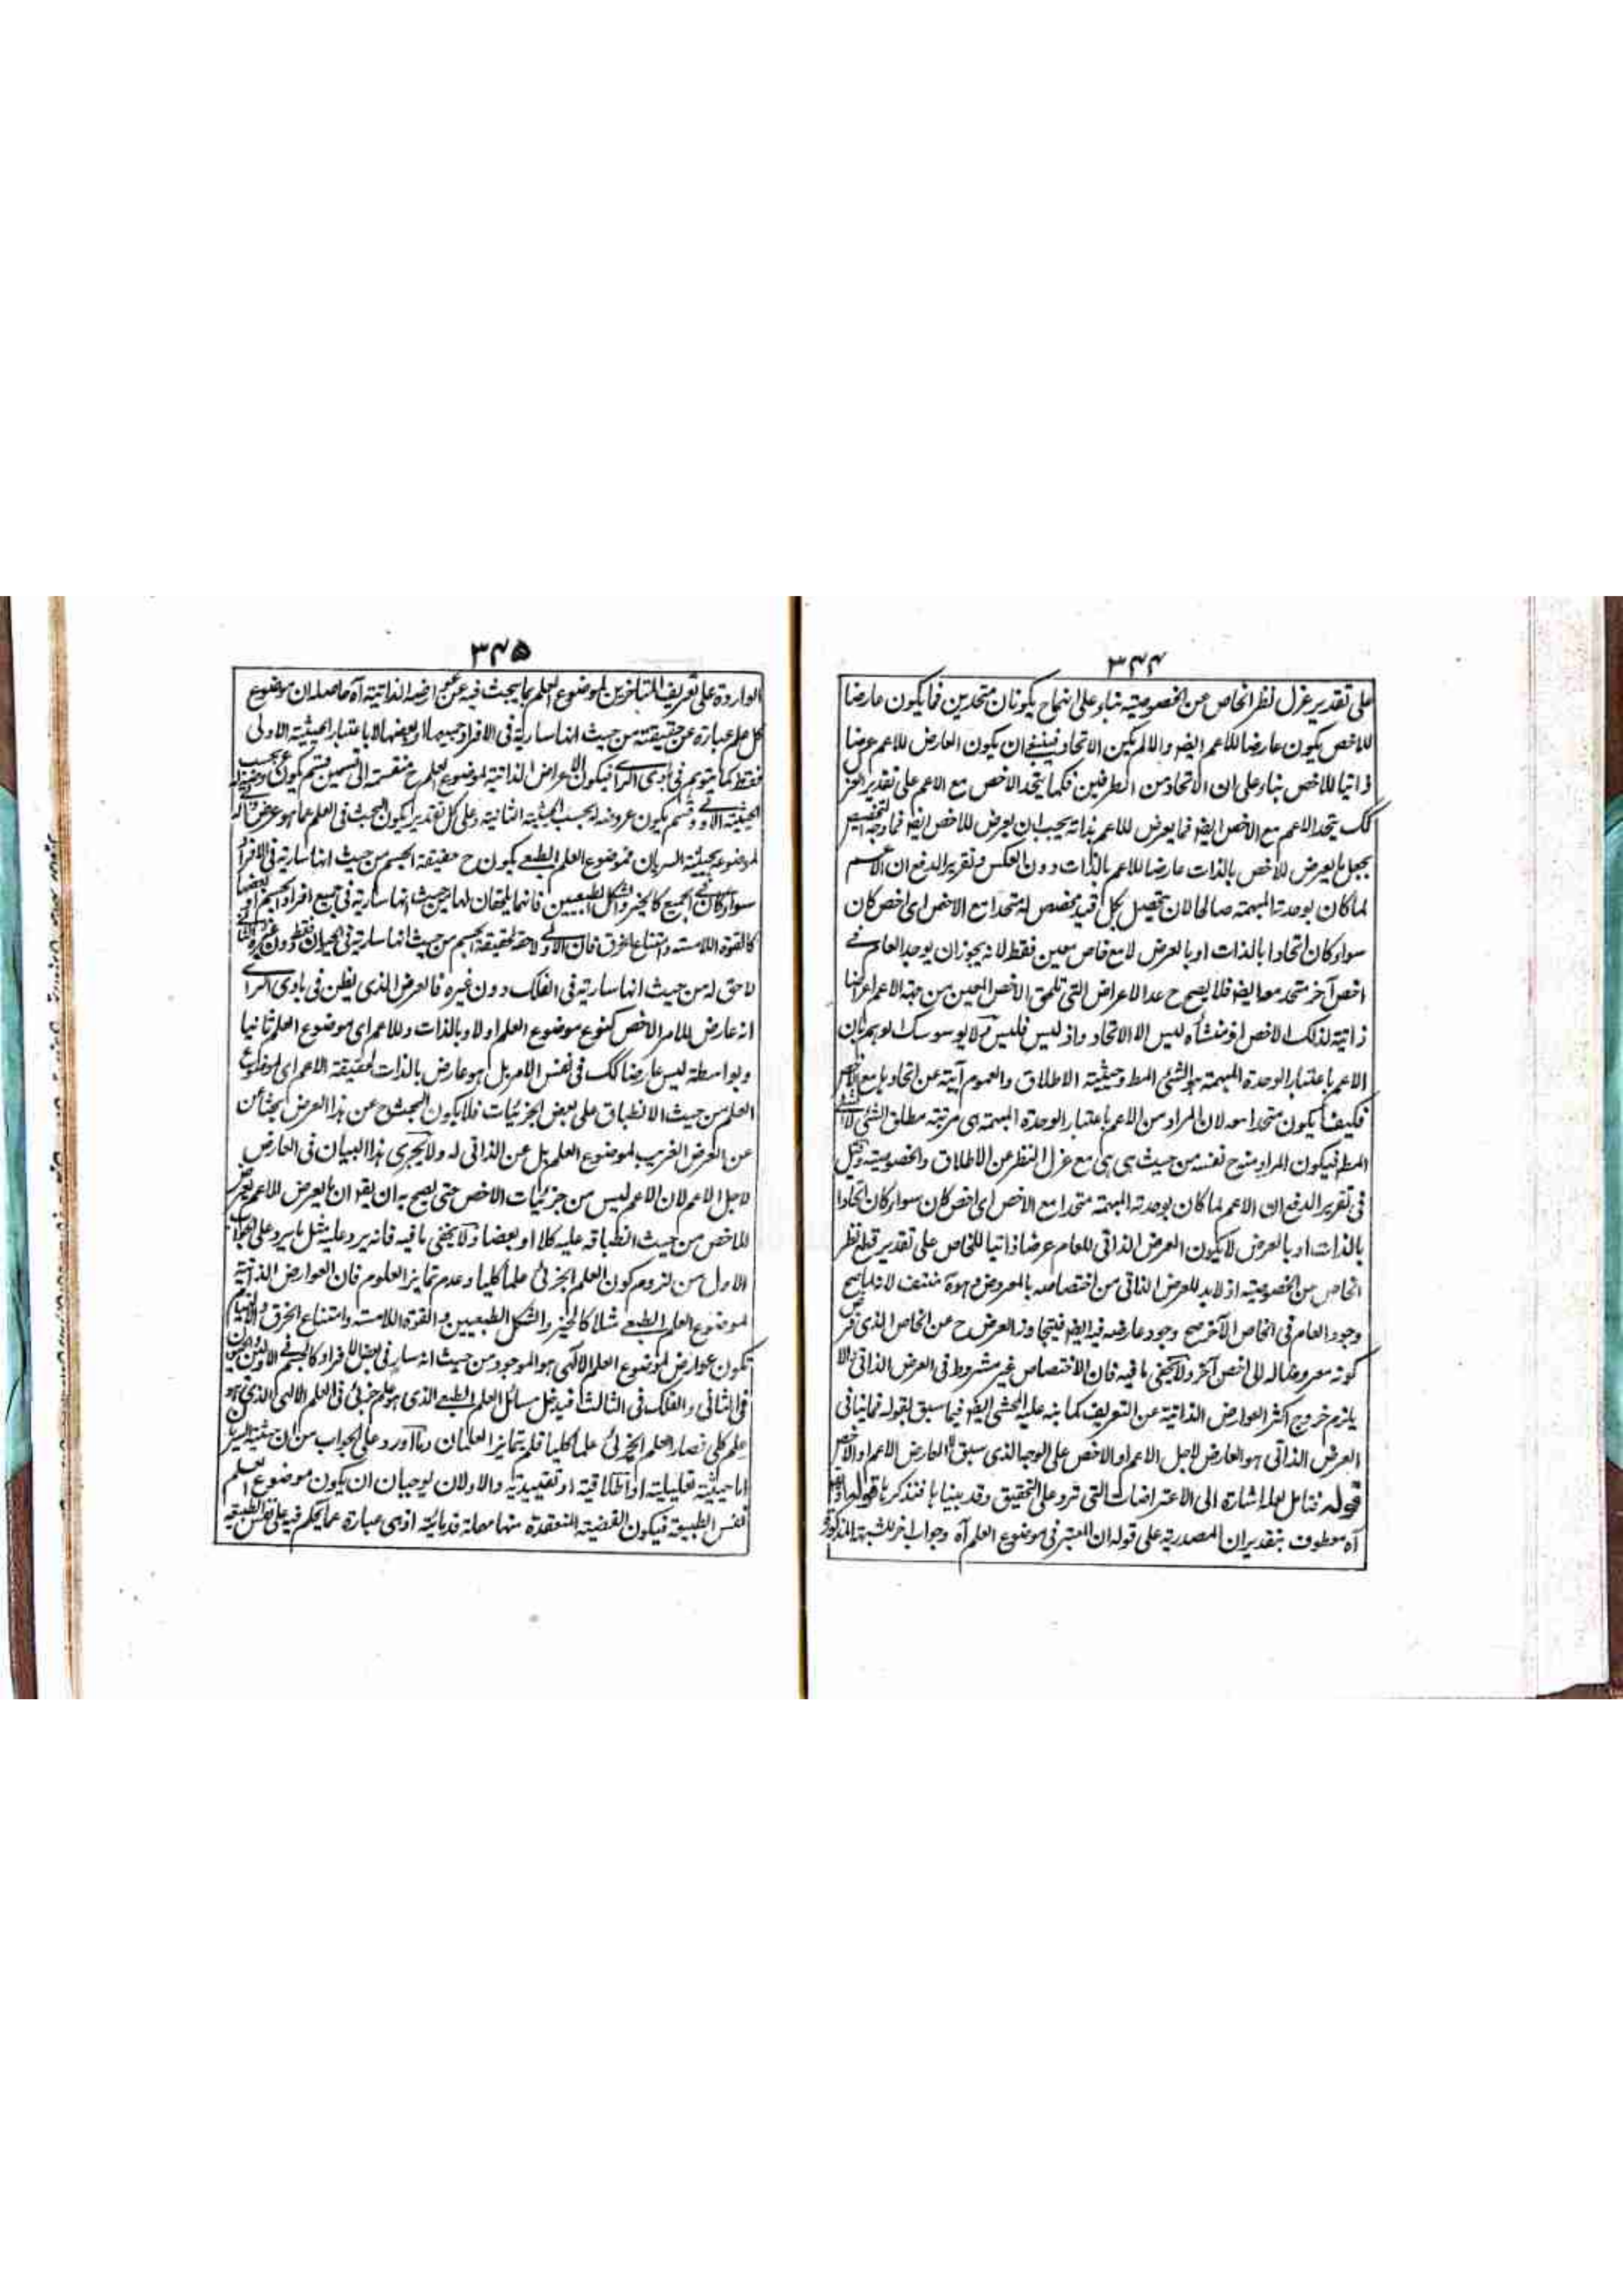 ٣٤٤
على تقدير عزل نظر الخاص عن الخصوصيته بناء على انهما ح يكونان متحدين فما يكون عارضا
للاخص يكون عارضا للاعم ايضا والا لم يكن الاتحاد فينبغى ان يكون العارض للاعم عرضا
ذاتيا للاخص بناء على ان الاتحاد من الطرفين فكما يتحد الاخص مع الاعم على تقدير العزل
كك يتحد الاعم مع الاخص ايضا فما يعرض للاعم بذاته يجب ان يعرض للاخص ايضا فما وجه التخصيص
بجعل ما يعرض للاخص بالذات عارضا للاعم بالذات دون العكس وتقرير الدفع ان الاعم
لما كان بوحدته المبهمته صالحا لان يتحصل بكل قيد مخصص له متحدا مع الاخص اى اخص كان
سواء كان اتحادا بالذات او بالعرض لا مع خاص معين فقط لانه يجوز ان يوجد العام فى
اخص آخر متحد معه ايضا فلا يصح ح عد الاعراض التى تلحق الاخص المعين من جهة الاعم اعراضا
ذاتية لذلك الاخص اذ منشأه ليس الا الاتحاد واذ ليس فليس ولا يوسوسك الوهم بان
الاعم باعتبار الوحدة المبهمته هو الشئى المط وحيثيته الاطلاق والعموم آبية عن اتحاده مع الاخص
فكيف يكون متحدا معه لان المراد من الاعم باعتبار الوحدة المبهمته هى مرتبته مطلق الشئى لا الشئى
المط فيكون المراد منه ح نفسه من حيث هى هى مع عزل النظر عن الاطلاق والخصوصيته وقيل
فى تقرير الدفع ان الاعم لما كان بوحدته المبهمته متحدا مع الاخص اى اخص كان سواء كان اتحادا
بالذات او بالعرض لا يكون العرض الذاتى للعام عرضا ذاتيا للخاص على تقدير قطع نظر
الخاص من الخصوصيته اذ لابد للعرض الذاتى من اختصاصه بالمعروض وهو ة منتف لانه لما صح
وجود العام فى الخاص الآخر صح وجود عارضه فيه ايضا فيتجاوز العرض ح عن الخاص الذى فرض
كونه معروضا له الى اخص آخر ولا يخفى ما فيه فان الاختصاص غير مشروط فى العرض الذاتى والا
يلزم خروج اكثر العوارض الذاتية عن التعريف كما بنه عليه المحشى ايضا فيما سبق بقوله فما ينافى
العرض الذاتى هو العارض لاجل الاعم او الاخص على الوجه الذى سبق لا العارض الاعم او الاخص
قوله فتامل لعله اشارة الى الاعتراضات التى ترد على التحقيق وقد بيناها فتذكرها قوله او
آه معطوف بتقدير ان المصدرية على قوله ان المعتبر فى موضوع العلم آه وجواب آخر للشبهة المذكورة
٣٤٥
الواردة على تعريف المتاخرين لموضوع العلم بما يبحث فيه عن عوارضه الذاتيته آه حاصله ان موضوع
كل علم عبارة عن حقيقته من حيث انها سارية فى الافراد جميعها او بعضها لا باعتبار الحيثيته الاولى
فقط كما يتوهم فى بادى الراى فيكون الاعراض الذاتية لموضوع العلم ح منقسمة الى قسمين قسم يكون عروضه له بحسب
الحيثيته الاولى وقسم يكون عروضه له بحسب الحيثيته الثانيته وعلى كل تقدير يكون البحث فى العلم عما هو عرض ذاتى
لموضوعه بحيثيته السريان فموضوع العلم الطبعى يكون ح حقيقة الجسم من حيث انها سارية فى الافراد
سواء كان فى الجميع كالحيز والشكل الطبعيين فانهما يلحقان لها من حيث انها سارية فى جميع افراد الجسم او بعضها
كالقوة اللامسته وامتناع الخرق فان الاولى لاحقة لحقيقة الجسم من حيث انها سارية فى الحيوان فقط دون غيره والثانى
لاحق له من حيث انها سارية فى الفلك دون غيره فالعرض الذى يظن فى بادى الراى
انه عارض للامر الاخص كنوع موضوع العلم اولا وبالذات وللاعم اى موضوع العلم ثانيا
وبواسطة ليس عارضا كك فى نفس الامر بل هو عارض بالذات لحقيقة الاعم اى موضوع
العلم من حيث الانطباق على بعض الجزئيات فلا يكون البحث ح عن هذا العرض بحثا عن
عن العرض الغريب لموضوع العلم بل عن الذاتى له ولا يجرى هذا البيان فى العارض
لاجل الاعم لان الاعم ليس من جزئيات الاخص حتى يصح به ان يقو ان ما يعرض للاعم يعرض
للاخص من حيث انطباقه عليه كلا او بعضا ولا يخفى ما فيه فانه يرد عليه مثل ما يرد على الجواب
الاول من لزوم كون العلم الجزئى علما كليا وعدم تمايز العلوم فان العوارض الذاتية
لموضوع العلم الطبعى مثلا كالحيز والشكل الطبعيين والقوة اللامسته وامتناع الخرق والالتيام
تكون عوارض لموضوع العلم الآلهى هو الموجود من حيث انه سار فى بعض الافراد كالجسم فى الاولين والحيوان
فى الثانى والفلك فى الثالث فيدخل مسائل العلم الطبعى الذى هو علم جزئى فى العلم الالهى الذى هو
علم كلى فصار العلم الجزئى علما كليا فلم يتمايز العلمان وما اورد على الجواب من ان حيثيته السريان
اما حيثيته تعليلية او اطلاقية او تقييدية والاولان يوجبان ان يكون موضوع العلم
نفس الطبيعة فيكون القضيته المنعقدة منها مهملة قدمائية اذ هى عبارة عما يحكم فيه على نفس الطبيعة